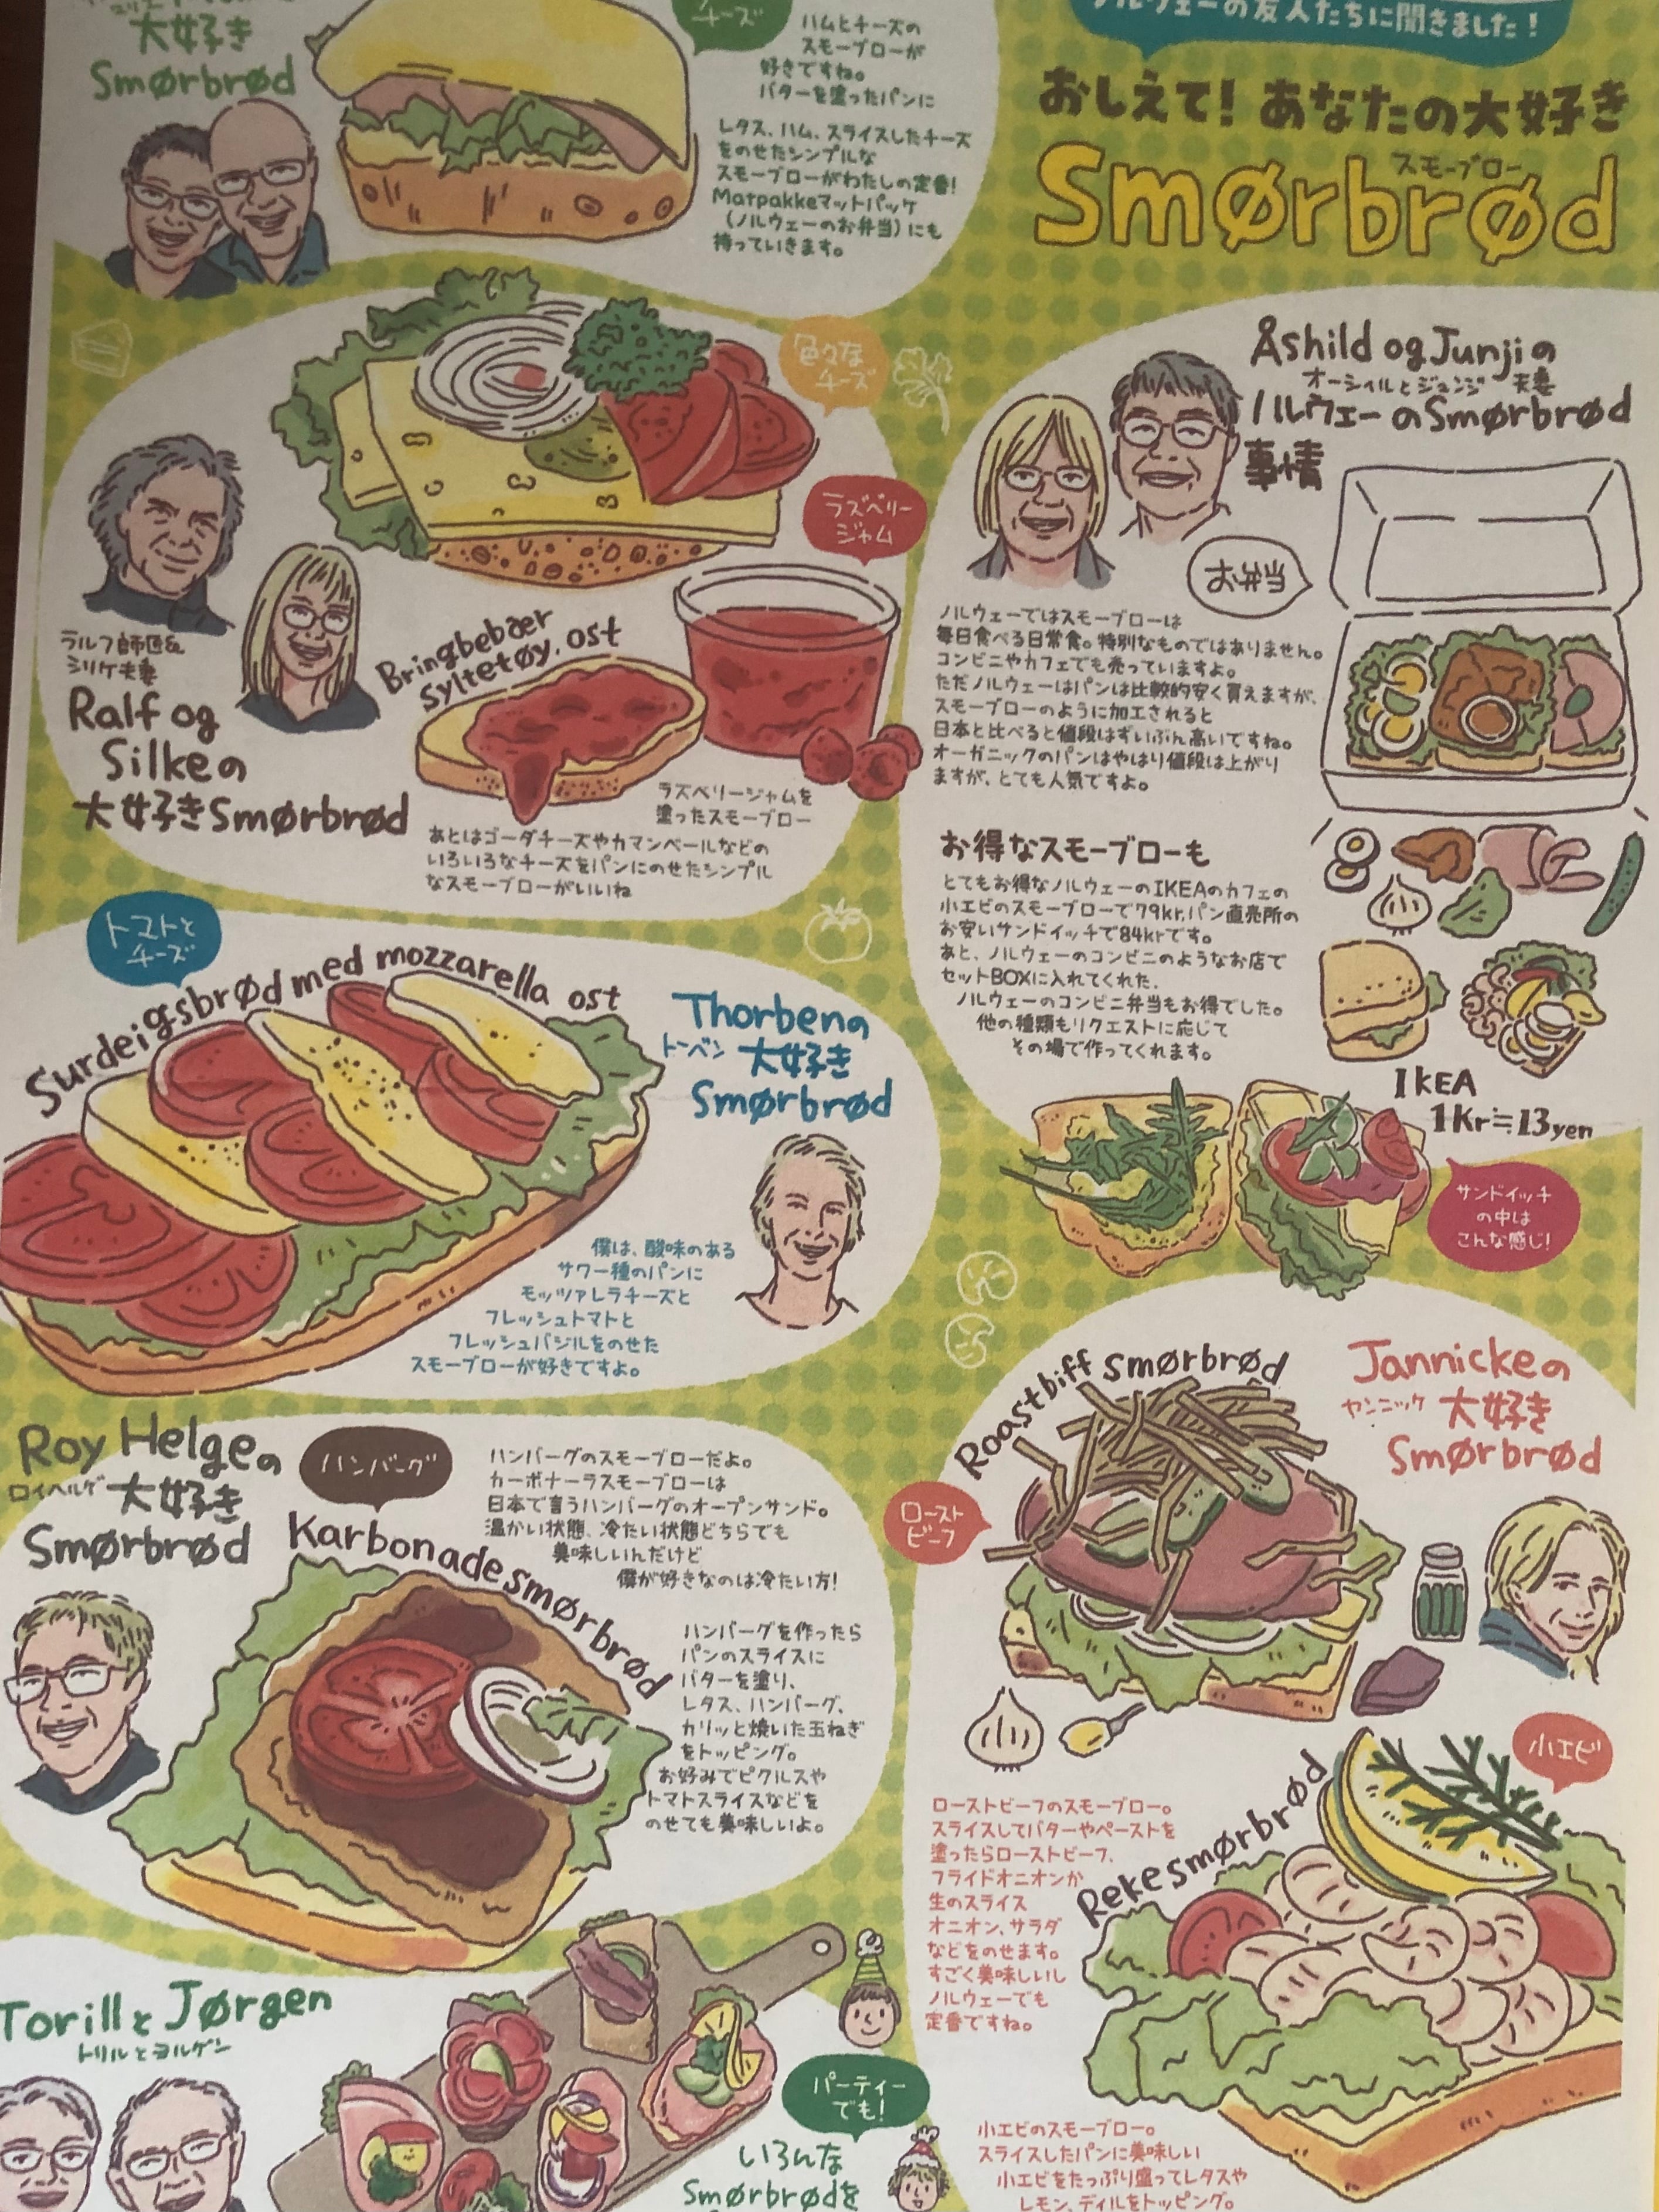 ノルウェーの友人たちに聞きました！
おしえて！あなたの大好き
スモーブロー
Smørbrød
大好き
Smørbrød
チーズ
ハムとチーズの
スモーブローが
好きですね。
バターを塗ったパンに
レタス、ハム、スライスしたチーズ
をのせたシンプルな
スモーブローがわたしの定番！
Matpakkeマットパッケ
（ノルウェーのお弁当）にも
持っていきます。
Åshild og Junjiの
オーシィルとジュンジ 夫妻
ノルウェーのSmørbrød
事情
お弁当
ノルウェーではスモーブローは
毎日食べる日常食。特別なものではありません。
コンビニやカフェでも売っていますよ。
ただノルウェーはパンは比較的安く買えますが、
スモーブローのように加工されると
日本と比べると値段はずいぶん高いですね。
オーガニックのパンはやはり値段は上がり
ますが、とても人気ですよ。
お得なスモーブローも
とてもお得なノルウェーのIKEAのカフェの
小エビのスモーブローで79kr,パン直売所の
お安いサンドイッチで84krです。
あと、ノルウェーのコンビニのようなお店で
セットBOXに入れてくれた、
ノルウェーのコンビニ弁当もお得でした。
他の種類もリクエストに応じて
その場で作ってくれます。
IKEA
1Kr≒13yen
サンドイッチ
の中は
こんな感じ！
色々な
チーズ
ラズベリー
ジャム
ラルフ師匠&
シリケ夫妻
Ralf og
Silkeの
大好きSmørbrød
Bringbebær
syltetøy, ost
ラズベリージャムを
塗ったスモーブロー
あとはゴーダチーズやカマンベールなどの
いろいろなチーズをパンにのせたシンプル
なスモーブローがいいね
トマトと
チーズ
Surdeigsbrød med mozzarella ost
Thorbenの
トーベン 大好き
Smørbrød
僕は、酸味のある
サワー種のパンに
モッツァレラチーズと
フレッシュトマトと
フレッシュバジルをのせた
スモーブローが好きですよ。
Roy Helgeの
ロイヘルゲ 大好き
Smørbrød
ハンバーグ
Karbonadesmørbrød
ハンバーグのスモーブローだよ。
カーボナーラスモーブローは
日本で言うハンバーグのオープンサンド。
温かい状態、冷たい状態どちらでも
美味しいんだけど
僕が好きなのは冷たい方！
ハンバーグを作ったら
パンのスライスに
バターを塗り、
レタス、ハンバーグ、
カリッと焼いた玉ねぎ
をトッピング。
お好みでピクルスや
トマトスライスなどを
のせても美味しいよ。
Jannickeの
ヤンニッケ 大好き
Smørbrød
Roastbiff smørbrød
ロースト
ビーフ
ローストビーフのスモーブロー。
スライスしてバターやペーストを
塗ったらローストビーフ、
フライドオニオンか
生のスライス
オニオン、サラダ
などをのせます。
すごく美味しいし
ノルウェーでも
定番ですね。
小エビ
Rekesmørbrød
小エビのスモーブロー。
スライスしたパンに美味しい
小エビをたっぷり盛ってレタスや
レモン、ディルをトッピング。
TorillとJørgen
トリルとヨルゲン
パーティー
でも！
いろんな
Smørbrødを